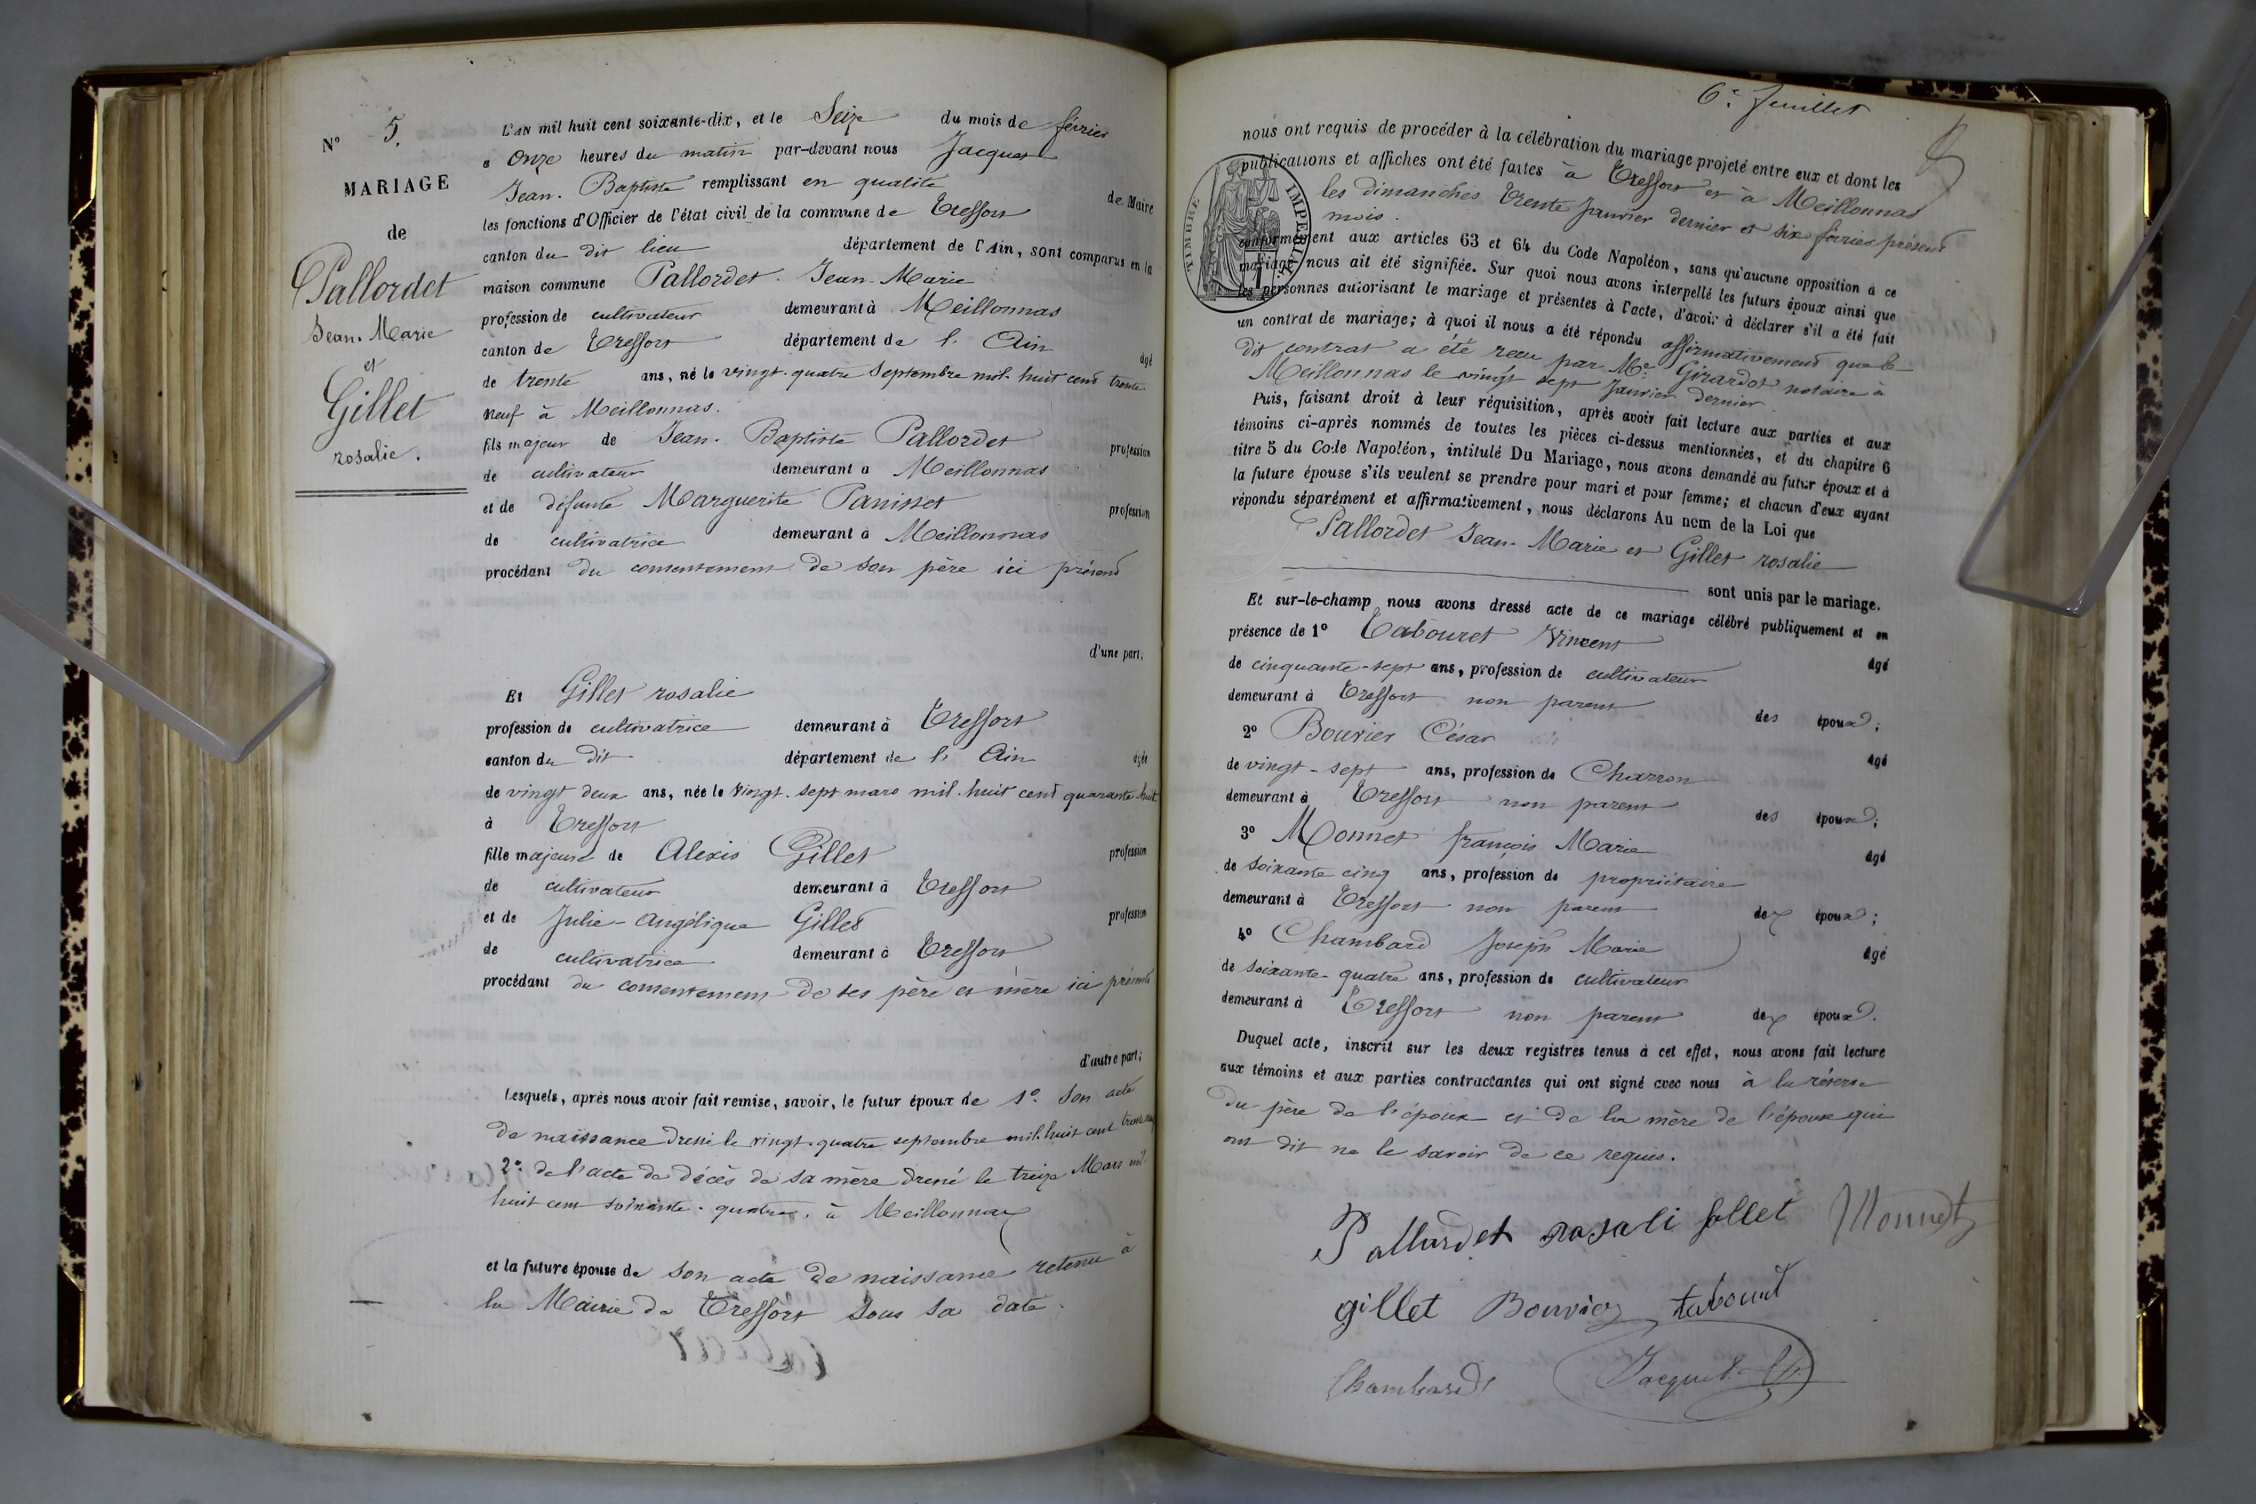 N° 5.
MARIAGE
de
Pallordet
Jean-Marie
et
Gillet
rosalie.
L'AN mil huit cent soixante-dix, et le Seize du mois de février
à Onze heures du matin par-devant nous Jacquet
Jean-Baptiste remplissant en qualité de Maire
les fonctions d'Officier de l'état civil de la commune de Treffort
canton du dit lieu département de l'Ain, sont comparus en la
maison commune Pallordet Jean-Marie
profession de cultivateur demeurant à Meillonnas
canton de Treffort département de l'Ain âgé
de trente ans, né le vingt-quatre Septembre mil-huit cent trente
neuf à Meillonnas.
fils majeur de Jean-Baptiste Pallordet profession
de cultivateur demeurant à Meillonnas
et de défunte Marguerite Panisset profession
de cultivatrice demeurant à Meillonnas
procédant du consentement de son père ici présent
d'une part.
Et Gillet rosalie
profession de cultivatrice demeurant à Treffort
canton du dit département de l'Ain âgée
de vingt deux ans, née le vingt-sept mars mil-huit cent quarante huit
à Treffort
fille majeure de Alexis Gillet profession
de cultivateur demeurant à Treffort
et de Julie-Angélique Gillet profession
de cultivatrice demeurant à Treffort
procédant du consentement de ses père et mère ici présents
d'autre part;
Lesquels, après nous avoir fait remise, savoir, le futur époux de 1° Son acte
de naissance dressé le vingt-quatre septembre mil-huit cent trente neuf
2° de l'acte de décès de sa mère dressé le treize Mars mil-
huit cent soixante-quatre à Meillonnas
et la future épouse de son acte de naissance retenu à
la Mairie de Treffort sous sa date.
6e feuillet
nous ont requis de procéder à la célébration du mariage projeté entre eux et dont les
publications et affiches ont été faites à Treffort et à Meillonnas
les dimanches trente Janvier dernier et six février présent
mois.
TIMBRE IMPERIAL
conformément aux articles 63 et 64 du Code Napoléon, sans qu'aucune opposition à ce
mariage nous ait été signifiée. Sur quoi nous avons interpellé les futurs époux ainsi que
les personnes autorisant le mariage et présentes à l'acte, d'avoir à déclarer s'il a été fait
un contrat de mariage; à quoi il nous a été répondu affirmativement que le
dit contrat a été recu par Me Girardot notaire à
Meillonnas le vingt sept Janvier dernier
Puis, faisant droit à leur réquisition, après avoir fait lecture aux parties et aux
témoins ci-après nommés de toutes les pièces ci-dessus mentionnées, et du chapitre 6
titre 5 du Code Napoléon, intitulé Du Mariage, nous avons demandé au futur époux et à
la future épouse s'ils veulent se prendre pour mari et pour femme; et chacun d'eux ayant
répondu séparément et affirmativement, nous déclarons Au nom de la Loi que
Pallordet Jean-Marie et Gillet rosalie
sont unis par le mariage.
Et sur-le-champ nous avons dressé acte de ce mariage célébré publiquement et en
présence de 1° Tabouret Vincent âgé
de cinquante-sept ans, profession de cultivateur
demeurant à Treffort non parent des époux;
2° Bouvier César âgé
de vingt-sept ans, profession de Charron
demeurant à Treffort non parent des époux;
3° Monnet françois Marie âgé
de soixante cinq ans, profession de propriétaire
demeurant à Treffort non parent des époux;
4° Chambard Joseph Marie âgé
de soixante-quatre ans, profession de cultivateur
demeurant à Treffort non parent des époux.
Duquel acte, inscrit sur les deux registres tenus à cet effet, nous avons fait lecture
aux témoins et aux parties contractantes qui ont signé avec nous à la réserve
du père de l'époux et de la mère de l'épouse qui
ont dit ne le savoir de ce requis.
Pallordet rosali gillet Monnet
gillet Bouvier tabouret
Chambard Jacquet